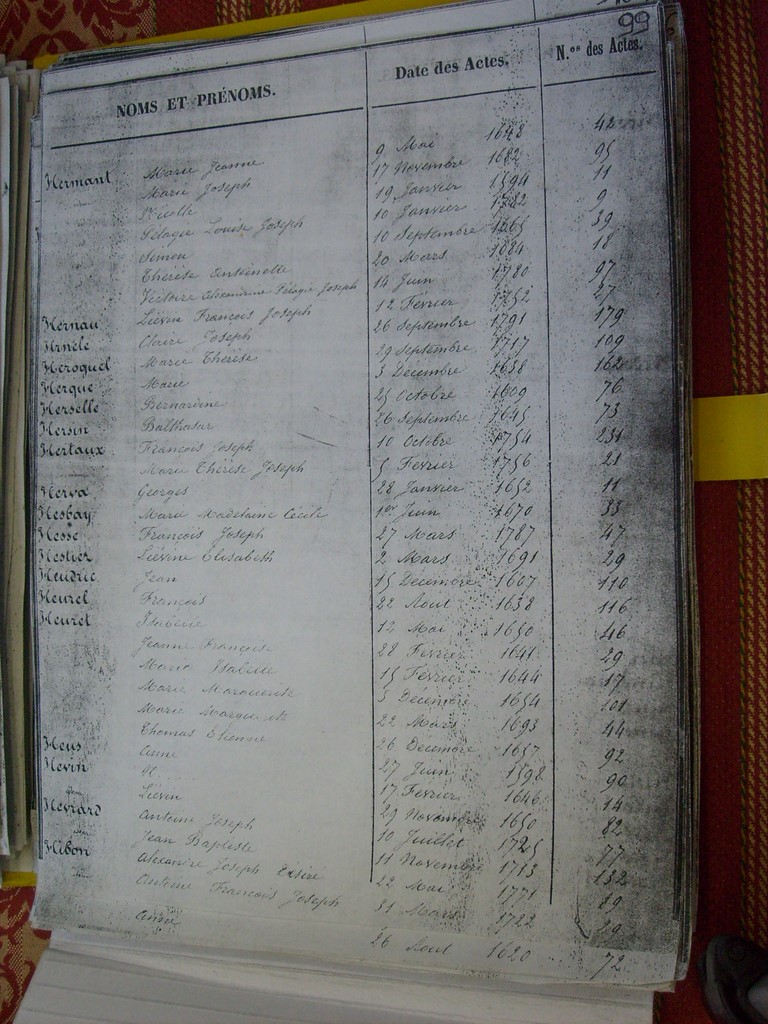 99
NOMS ET PRÉNOMS. Date des Actes. N.os des Actes.
Hermant Marie Jeanne 9 Mai 1648 42
Marie Joseph 17 Novembre 1682 95
Nicolle 19 Janvier 1594 11
Pélagie Louise Joseph 10 Janvier 1782 9
Simon 10 Septembre 1665 39
Thérèse Antoinette 20 Mars 1684 18
Victoire Alexandrine Pélagie Joseph 14 Juin 1780 97
Hernau Liévin François Joseph 12 Février 1752 27
Claire Joseph 26 Septembre 1791 179
Héroguel Marie Thérèse 29 Septembre 1717 109
Herque Marie 3 Décembre 1638 162
Herselle Bernardine 25 Octobre 1609 76
Hersin Balthasar 26 Septembre 1645 73
Hertaux François Joseph 10 Octobre 1754 231
Marie Thérèse Joseph 5 Février 1756 21
Herva Georges 28 Janvier 1652 11
Hesbay Marie Madelaine Cécile 1er Juin 1670 33
Hesse François Joseph 27 Mars 1787 47
Hestier Liévine Elisabeth 2 Mars 1691 29
Heudric Jean 15 Décembre 1607 110
Heurel François 22 Aout 1638 116
Heuret Isabelle 12 Mai 1650 46
Jeanne Françoise 28 Février 1641 29
Marie Isabelle 15 Février 1644 17
Marie Marguerite 3 Décembre 1654 101
Marie Marguerite 22 Mars 1693 44
Thomas Etienne 26 Décembre 1657 92
Heus Anne 27 Juin 1598 90
Hevin N 17 Février 1646 14
Liévin 29 Novembre 1650 82
Hevrard Antoine Joseph 10 Juillet 1725 77
Jean Baptiste 11 Novembre 1713 132
Hibon Alexandre Joseph Désiré 22 Mai 1771 89
Antoine François Joseph 31 Mars 1722 29
Anne 26 Aout 1620 72